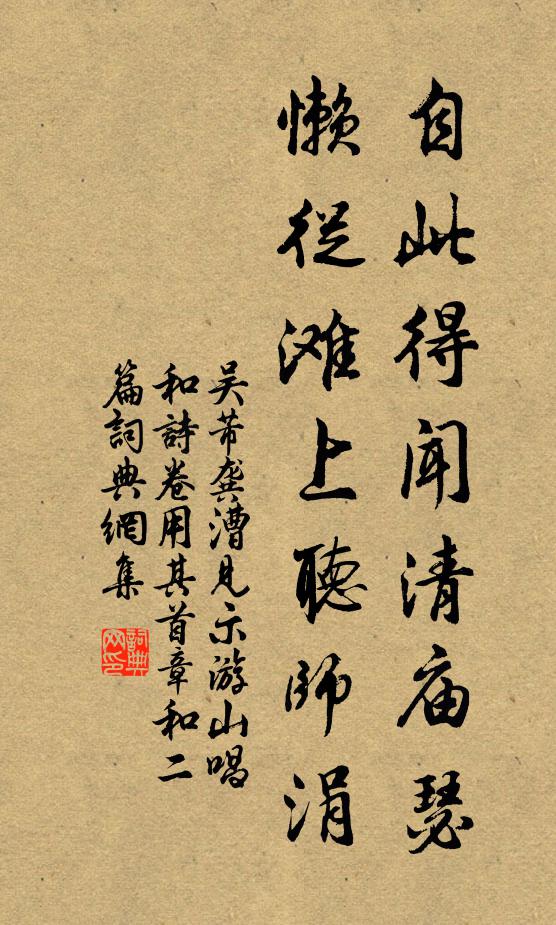 自此得闻清庙瑟
懒從滩上聽師涓
吴芾龚漕見示游山唱
和詩卷用其首章和二
篇詞典網集
詞典
网印